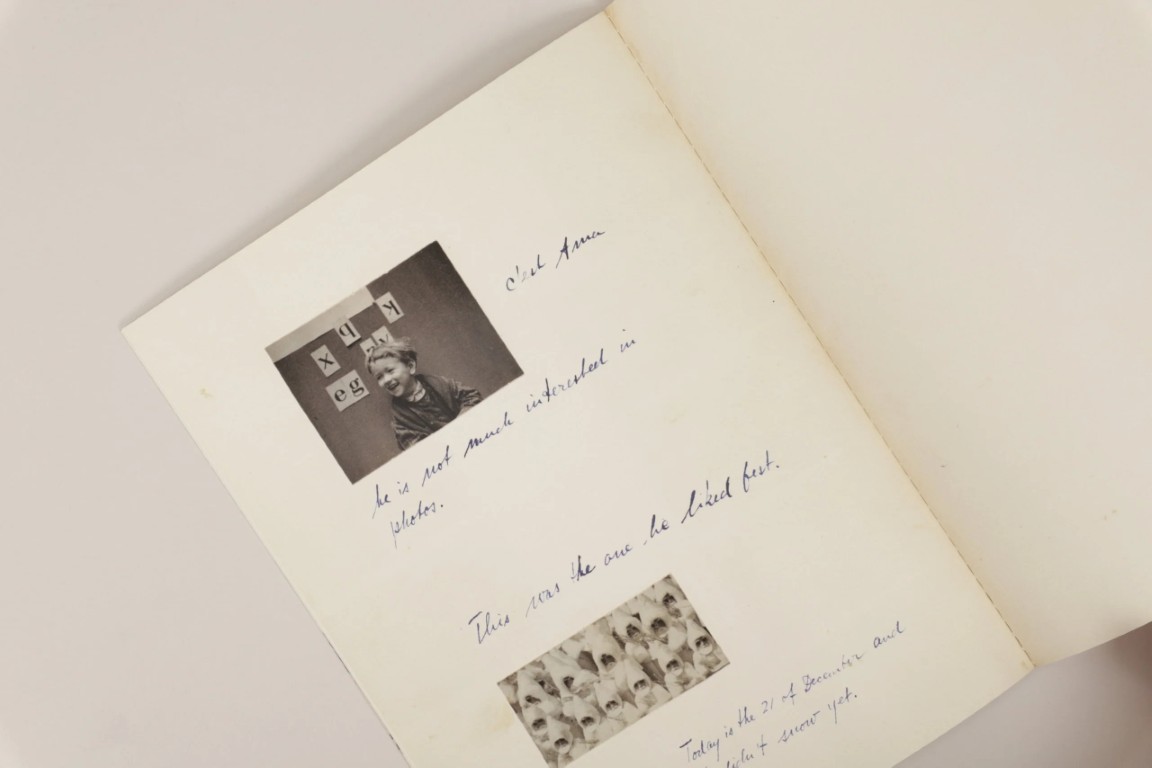 c'est Ama
K
b
x
eg
he is not much interested in
photos.
This was the one he liked best.
Today is the 21 of December and
didn't snow yet.